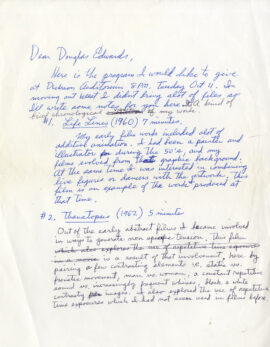 Dear Douglas Edwards,
Here is the program I would like to give
at Dickson Auditorium 8 P.M. Tuesday Oct 11. In
moving out west I didn't bring alot of files so
let write some notes for you here. A kind of
brief chronological of my work.
#1. Life Lines (1960) 7 minutes.
My early film work included alot of
addition animation. I had been a painter and
illustrator during the 50's, and my
films evolved from that graphic background.
At the same time I was interested in combining
live figures or dancers with the artwork. This
film is an example of the work produced at
that time.
#2. Thanatopsis (1962) 5 minutes
Out of the early abstract films I became involved
in ways to generate non specific tension. This film
which also explores the use of repetitive time exposures
in a movie is a result of that involvement, here by
pairing a few contrasting elements i.e. static vs.
frenetic movement, man vs. woman, a constant repetitive
sound vs. increasingly poignant ones, black & white
contrasty image. It also explored the use of repetitive
time exposures which I had not seen used in films before.